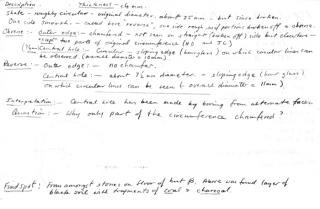 Description. Thickness - c 4 mm.
Shape - roughly circular - original diameter about 35 mm - but since broken.
One side smooth - called obverse, one side rough and portions broken off = reverse.
Obverse - outer edge - chamfered - not seen on straight (broken off) side but elsewhere -
two parts of original circumference
Central hole - Circular - sloping edge (hourglass) on which circular lines can
be observed (overall diameter = 10mm)
Reverse :- Outer edge :- no chamfer.
Central hole - about 7½mm diameter - sloping edge (hour glass)
on which circular lines can be seen (overall diameter = 11mm)
Interpretation :- Central hole has been made by boring from alternate faces.
Question :- Why only part of the circumference chamfered?
Find spot : From amongst stones on floor of hut B. Above was found layer of
black soil with fragments of coal & charcoal.